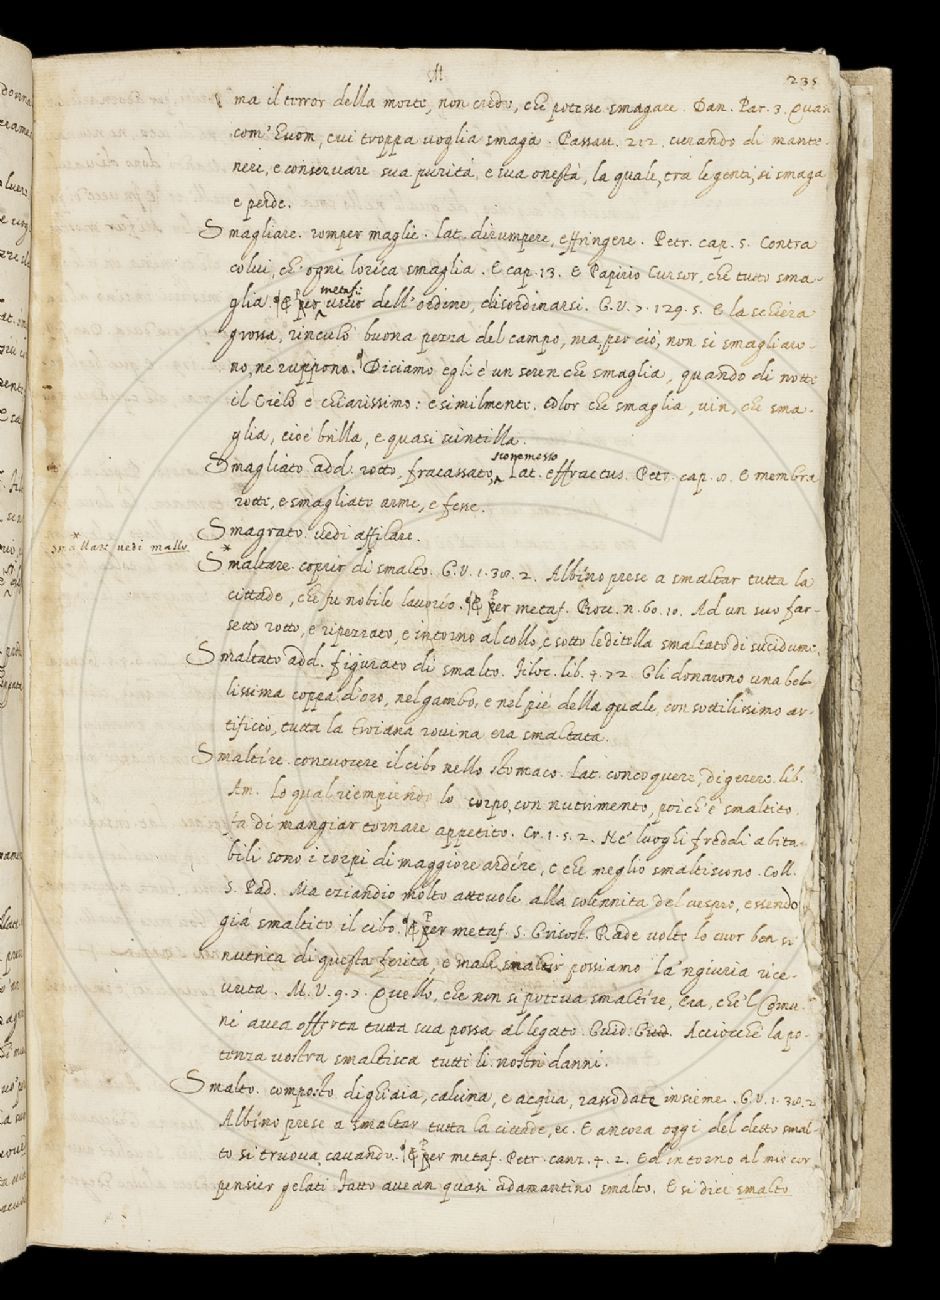 M
235
ma il terror della morte, non credo, che potesse smagare. Dan. Par. 3. Quan
com' Euom, cui troppa voglia smaga. Passau. 212. curando di mante-
nere, e conservare sua purità, e sua onestà, la quale, tra le genti, si smaga
e perde.
Smagliare. romper maglie. lat. dirumpere, effringere. Petr. cap. 5. Contra
colui, ch' ogni lorica smaglia. E cap. 13. E Papirio Cursor, che tutto sma-
metaf.
glia. ¶ E per uscir dell' ordine, disordinarsi. G. V. 7. 129. 5. E la schiera
grossa, rinculò buona pezza del campo, ma, per ciò, non si smagliaro-
no, ne ruppono. Diciamo egli è un seren che smaglia, quando di notte
il Cielo è chiarissimo: e similmente. Color che smaglia, vin, che sma-
glia, cioè brilla, e quasi scintilla.
sconmesso
Smagliato. add. rotto, fracassato, lat. effractus. Petr. cap. E membra
rotte, e smagliate arme, e fesse.
Smagrato. vedi affilare.
smallare vedi mallo
Smaltare. coprir di smalto. G. V. 1. 38. 2. Albino prese a smaltar tutta la
cittade, che fu nobile lavorio. ¶ E per metaf. Bocc. n. 60. 10. Ad un suo far-
setto rotto, e ripezzato, e intorno al collo, e sotto le ditella smaltato di sucidume.
Smaltato add. figurato di smalto. Filoc. lib. 4. 72. Gli donarono una bel-
lissima coppa d'oro, nel gambo, e nel piè della quale, con sottilissimo ar-
tificio, tutta la troiana rovina era smaltata.
Smaltire. concuocere il cibo nello stomaco. lat. concoquere, digerere. lib.
Am. Lo qual riempiendo lo corpo, con nutrimento, poich' è smaltito,
fa di mangiar tornare appetito. Cr. 1. 5. 2. Ne' luoghi freddi abita-
bili sono i corpi di maggiore ardire, e che meglio smaltiscono. Coll.
S. Pad. Ma eziandio molto attevole alla solennita del vespro, essendo
già smaltito il cibo. ¶ E per metaf. S. Grisost. Rade volte lo cuor ben si
nutrica di questa ferita, e male smaltir possiamo la 'ngiuria rice-
vuta. M. V. 9. 7. Quello, che non si poteva smaltire, era, che 'l Comu-
ne avea offerta tutta sua possa al legato. Guid. Guid. Acciocchè la po-
tenza vostra smaltisca tutti li nostri danni.
Smalto. composto di ghiaia, calcina, e acqua, rassodate insieme. G. V. 1. 38. 2
Albino prese a smaltar tutta la cittade, ec. E ancora oggi del detto smal-
to si truova cavando. ¶ E per metaf. Petr. canz. 4. 2. Ed intorno al mio cor
pensier gelati Fatto avean quasi adamantino smalto. E si dice smalto